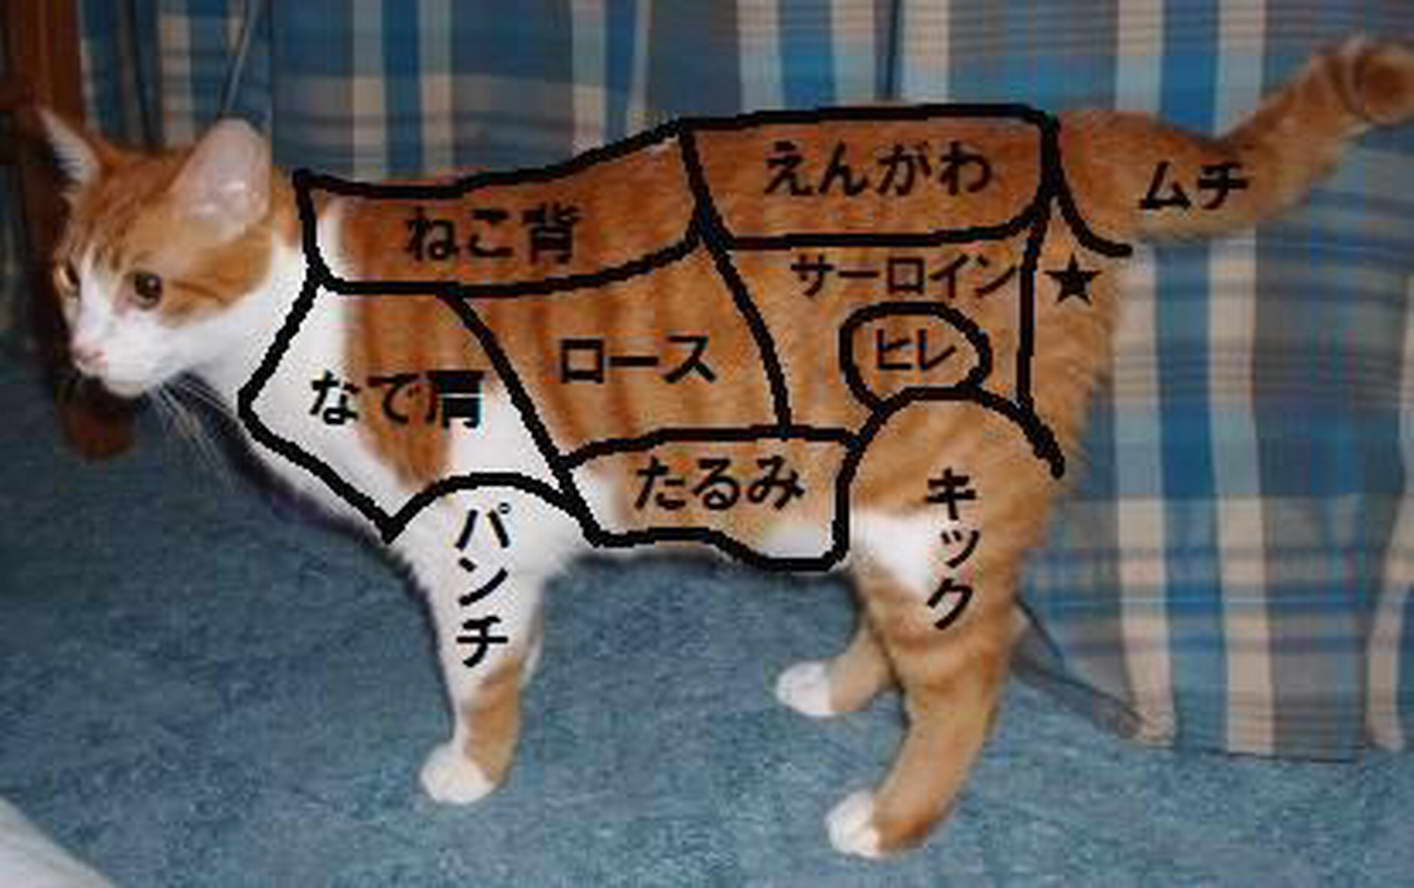 ねこ背
えんがわ
ムチ
サーロイン
★
ロース
ヒレ
なで肩
たるみ
パンチ
キック